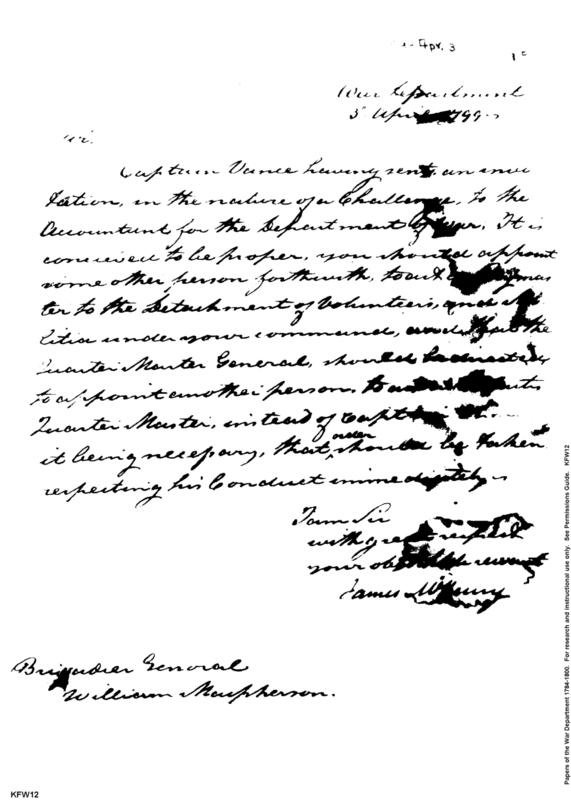 Apr. 3
War Department
3 April 1799
Sir.
Captain Vance having sent, an invi
tation, in the nature of a Challenge, to the
Accountant for the Department of War. It is
conceived to be proper, you should appoint
some other person forthwith, to act
ter to the Detachment of Volunteers, and Mi
litia under your command, and that the
Quarter Master General, should be
to appoint another person, to act
Quarter Master, instead of Capt
it being necessary, that order should be taken
respecting his Conduct immediately
I am Sir
with great respect
your obt servant
James McHenry
Brigadier General
William Macpherson.
Papers of the War Department 1784-1800. For research and instructional use only. See Permissions Guide. KFW12
KFW12